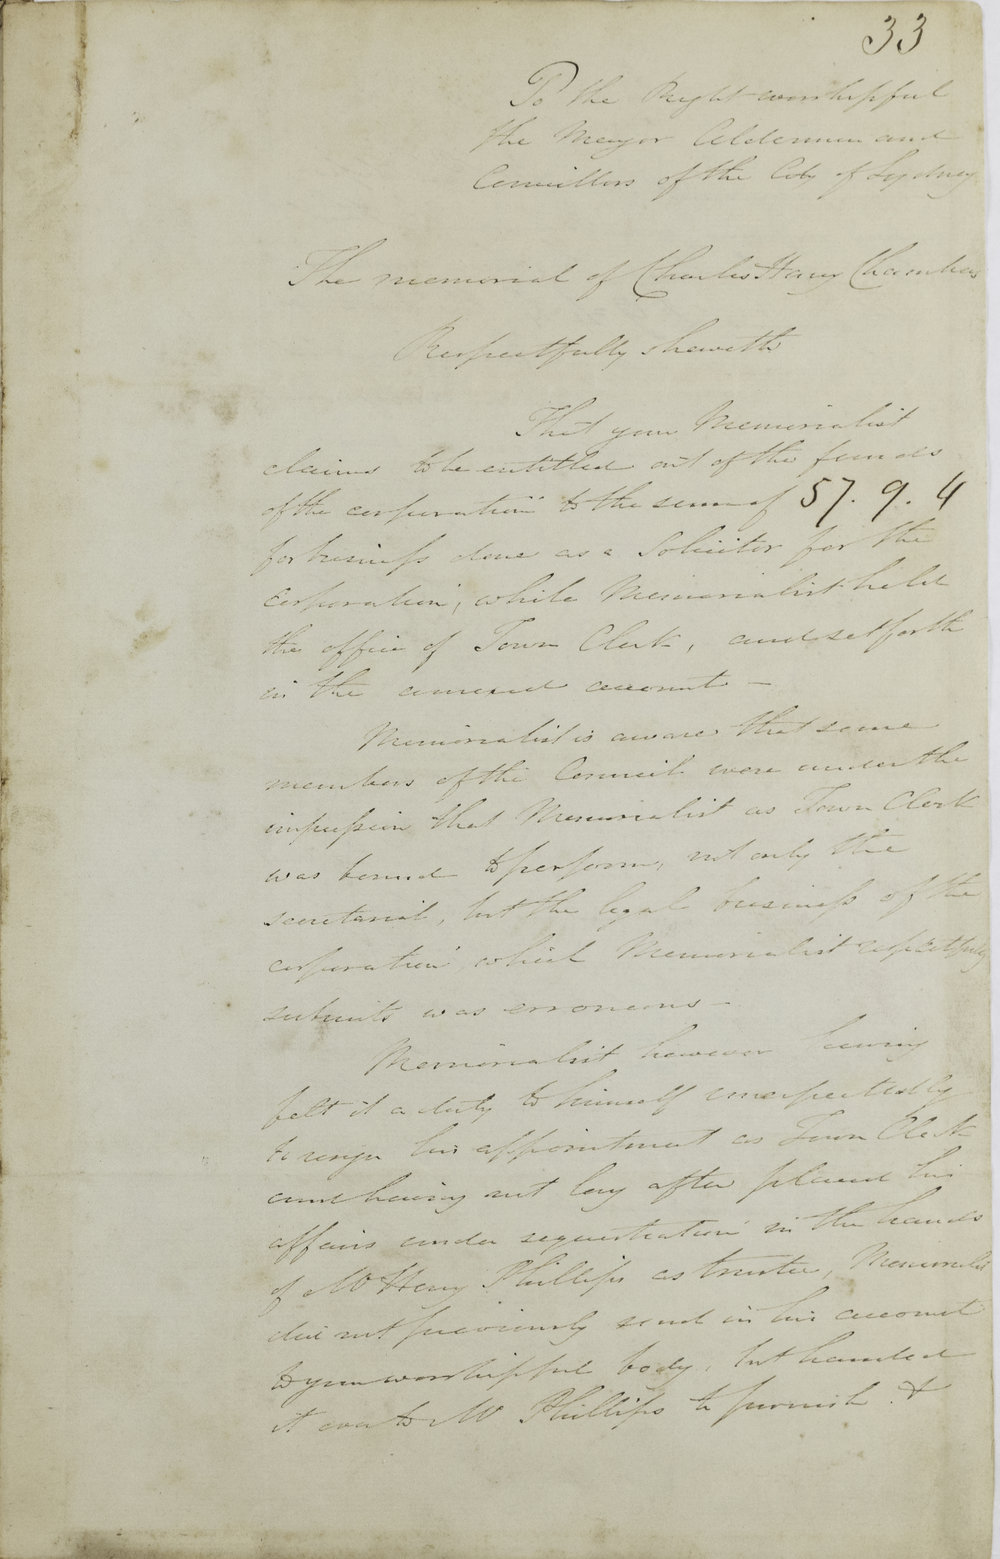 33
To the Right worshipful
the Mayor Aldermen and
Councillors of the City of Sydney
The memorial of Charles Henry Chambers
Respectfully sheweth
That your Memorialist
claims to be entitled out of the funds
of the corporation to the sum of 57. 9. 4
for business done as a Solicitor for the
corporation, while Memorialist held
the office of Town Clerk, and set forth
in the annexed account –
Memorialist is aware that some
members of the Council were under the
impression that Memorialist as Town Clerk
was bound to perform, not only the
secretarial, but the legal business of the
corporation, which Memorialist respectfully
submits was erroneous –
Memorialist however having
felt it a duty to himself unexpectedly
to resign his appointment as Town Clerk
and having not long after placed his
affairs under sequestration in the hands
of Mr Henry Phillips as trustee, Memorialist
did not previously send in his account
to your worshipful body, but handed
it over to Mr Phillips to furnish &